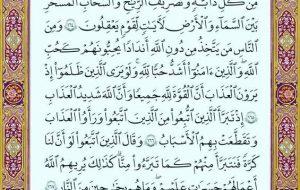 مِن كُلِّ دَآبَّةٍ وَتَصْرِيفِ ٱلرِّيَٰحِ وَٱلسَّحَابِ ٱلْمُسَخَّرِ
بَيْنَ ٱلسَّمَآءِ وَٱلْأَرْضِ لَأٓيَٰتٍ لِّقَوْمٍ يَعْقِلُونَ ١٦٤ وَمِنَ
ٱلنَّاسِ مَن يَتَّخِذُ مِن دُونِ ٱللَّهِ أَندَادًا يُحِبُّونَهُمْ كَحُبِّ
ٱللَّهِ وَٱلَّذِينَ ءَامَنُوٓا۟ أَشَدُّ حُبًّا لِّلَّهِ وَلَوْ يَرَى ٱلَّذِينَ ظَلَمُوٓا۟ إِذْ
يَرَوْنَ ٱلْعَذَابَ أَنَّ ٱلْقُوَّةَ لِلَّهِ جَمِيعًا وَأَنَّ ٱللَّهَ شَدِيدُ ٱلْعَذَابِ
١٦٥ إِذْ تَبَرَّأَ ٱلَّذِينَ ٱتُّبِعُوا۟ مِنَ ٱلَّذِينَ ٱتَّبَعُوا۟ وَرَأَوُا۟ ٱلْعَذَابَ
وَتَقَطَّعَتْ بِهِمُ ٱلْأَسْبَابُ ١٦٦ وَقَالَ ٱلَّذِينَ ٱتَّبَعُوا۟ لَوْ أَنَّ لَنَا
كَرَّةً فَنَتَبَرَّأَ مِنْهُمْ كَمَا تَبَرَّءُوا۟ مِنَّا كَذَٰلِكَ يُرِيهِمُ ٱللَّهُ
أَعْمَٰلَهُمْ حَسَرَٰتٍ عَلَيْهِمْ وَمَا هُم بِخَٰرِجِينَ مِنَ ٱلنَّارِ